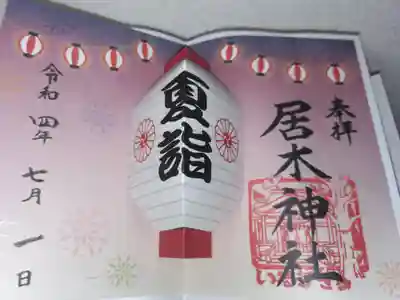 奉拝
居木神社
夏詣
令和四年七月一日